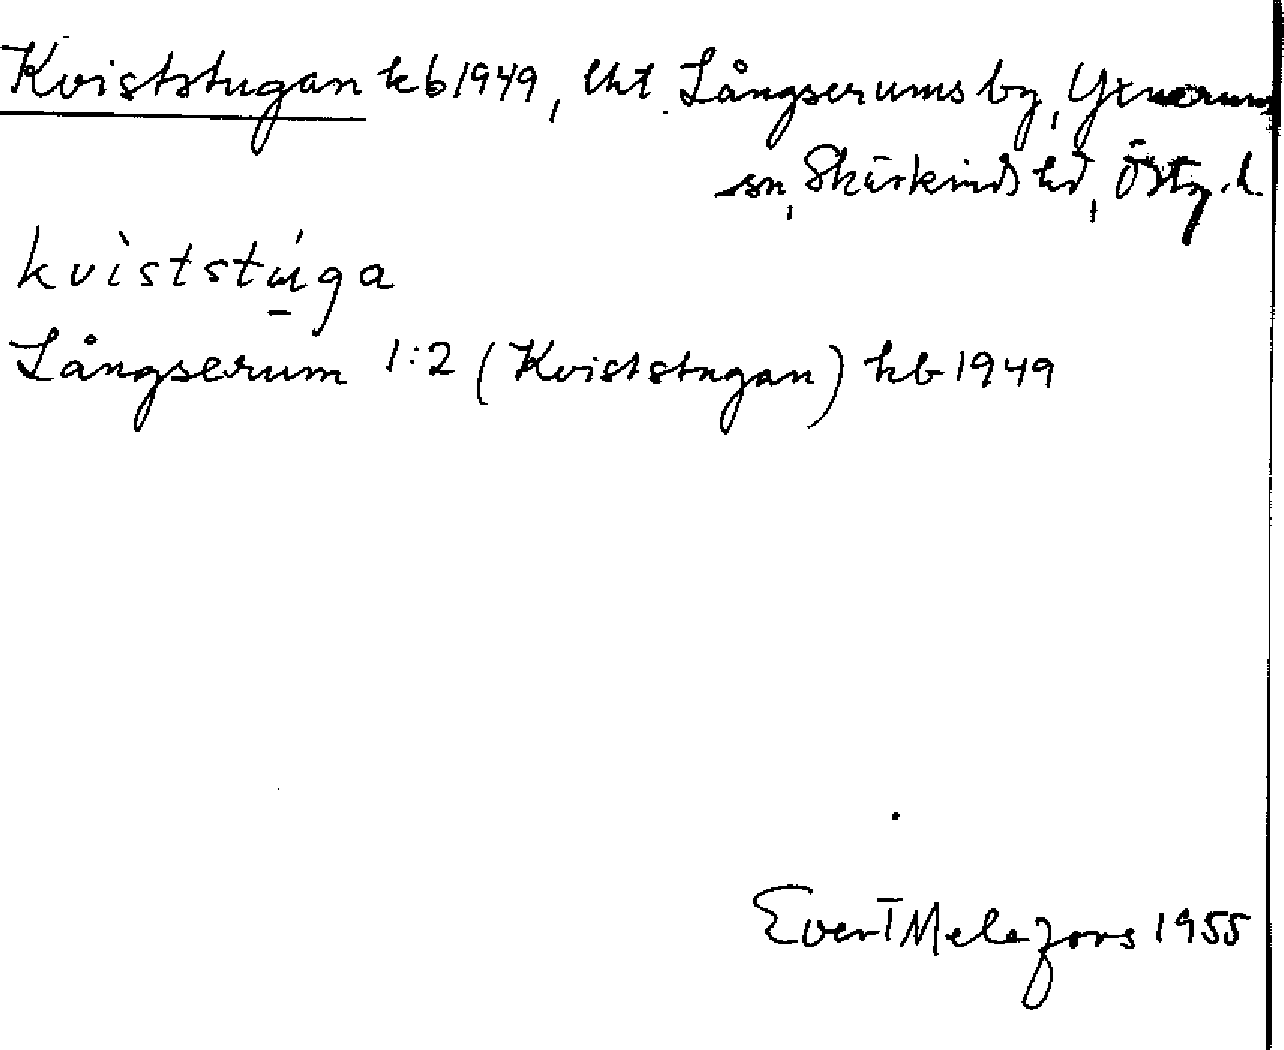 Kviststugan kb 1949, lht Långserums by, Yxnerums
sn, Skärkinds hd, Östg. l.
kvìststúga
Långserum 1:2 (Kviststugan) kb 1949
Evert Melefors 1955